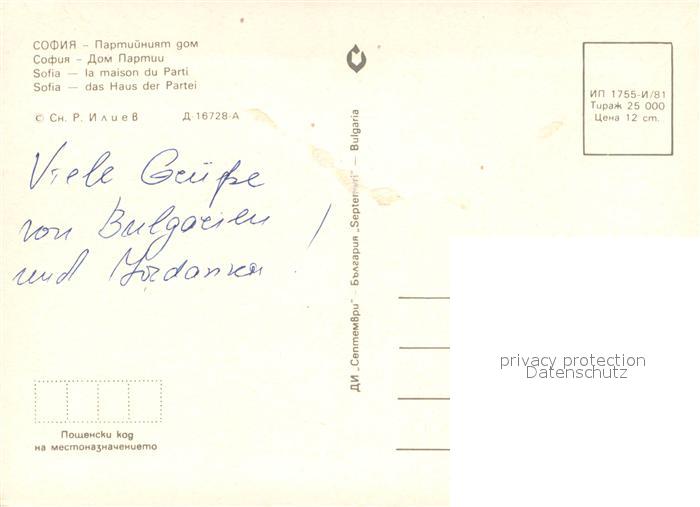 СОФИЯ – Партийният дом
София – Дом Партии
Sofia — la maison du Parti
Sofia — das Haus der Partei
© Сн. Р. Илиев Д-16728-А
Viele Grüße
von Bulgarien
und Jordanka !
Пощенски код
на местоназначението
ДИ „Септември" – България „Septemvri" – Bulgaria
ИП 1755-И/81
Тираж 25 000
Цена 12 ст.
privacy protection
Datenschutz